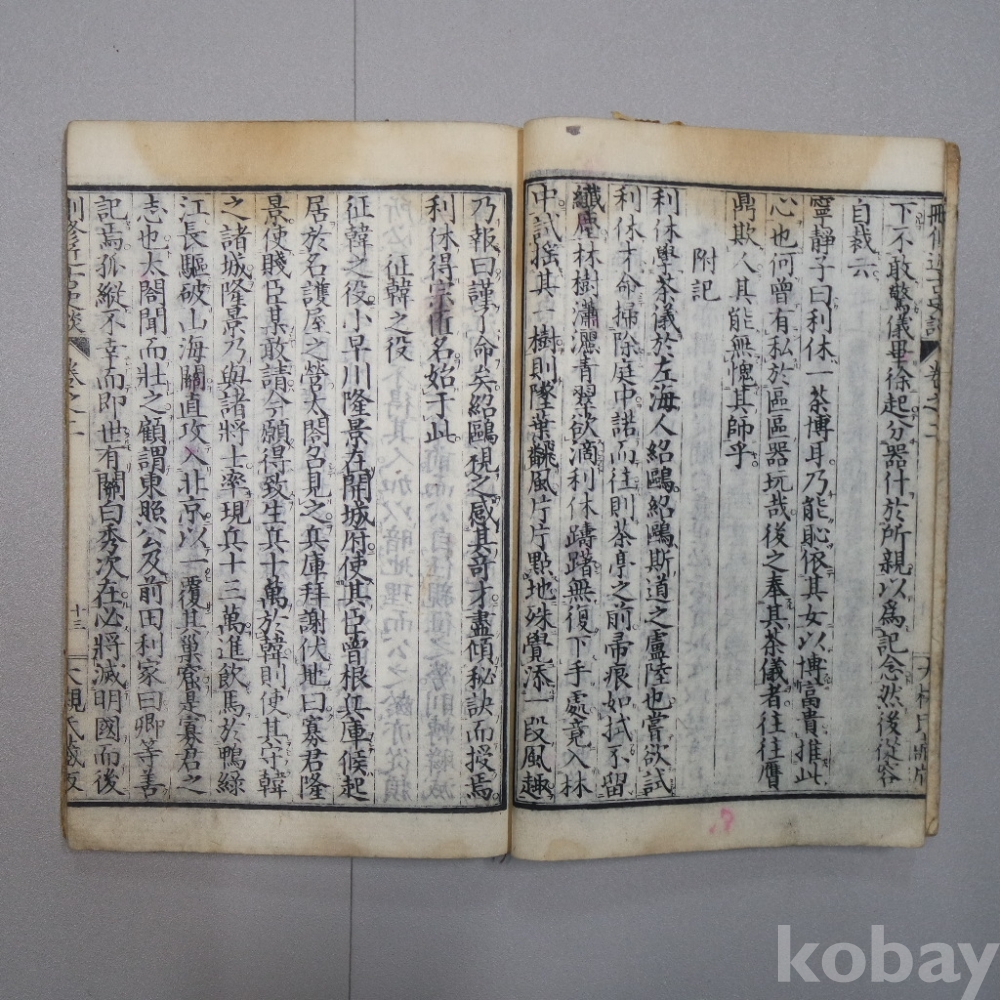 下不敢驚儀畢徐起分器什於所親以爲記念然後從容
自裁云
寧靜子曰利休一茶博耳乃能恥依其女以博富貴推此
心也何曾有私於區區器玩哉後之奉其茶儀者往往贋
鼎欺人其能無愧其師乎
附記
利休學茶儀於左海人紹鷗紹鷗斯道之盧陸也嘗欲試
利休才命掃除庭中諾而往則茶亭之前帚痕如拭不留
纖塵林樹瀟灑青翠欲滴利休躊躇無復下手處竟入林
中試搖其一樹則墜葉飜風片片點地殊覺添一段風趣
乃報曰謹了命矣紹鷗視之感其奇才盡傾秘訣而授焉
利休得宗匠名始于此
征韓之役
征韓之役小早川隆景在開城府使其臣曾根兵庫候起
居於名護屋之營太閤召見之兵庫拜謝伏地曰寡君隆
景使賤臣某敢請今願得致生兵十萬於韓則使其守韓
之諸城隆景乃與諸將士率現兵十三萬進飲馬於鴨綠
江長驅破山海關直攻入北京以一覆其巢窟是寡君之
志也太閤聞而壯之顧謂東照公及前田利家曰卿等善
記焉孤縱不幸而即世有關白秀次在必將滅明國而後
卷之二
十三
kobay